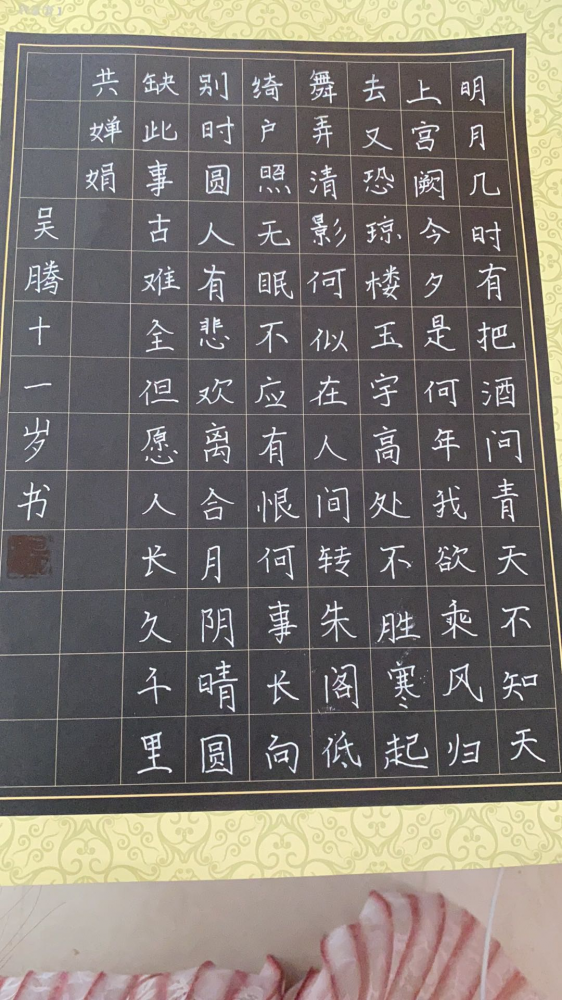 明月几时有把酒问青天不知天
上宫阙今夕是何年我欲乘风归
去又恐琼楼玉宇高处不胜寒起
舞弄清影何似在人间转朱阁低
绮户照无眠不应有恨何事长向
别时圆人有悲欢离合月阴晴圆
缺此事古难全但愿人长久千里
共婵娟
吴腾十一岁书